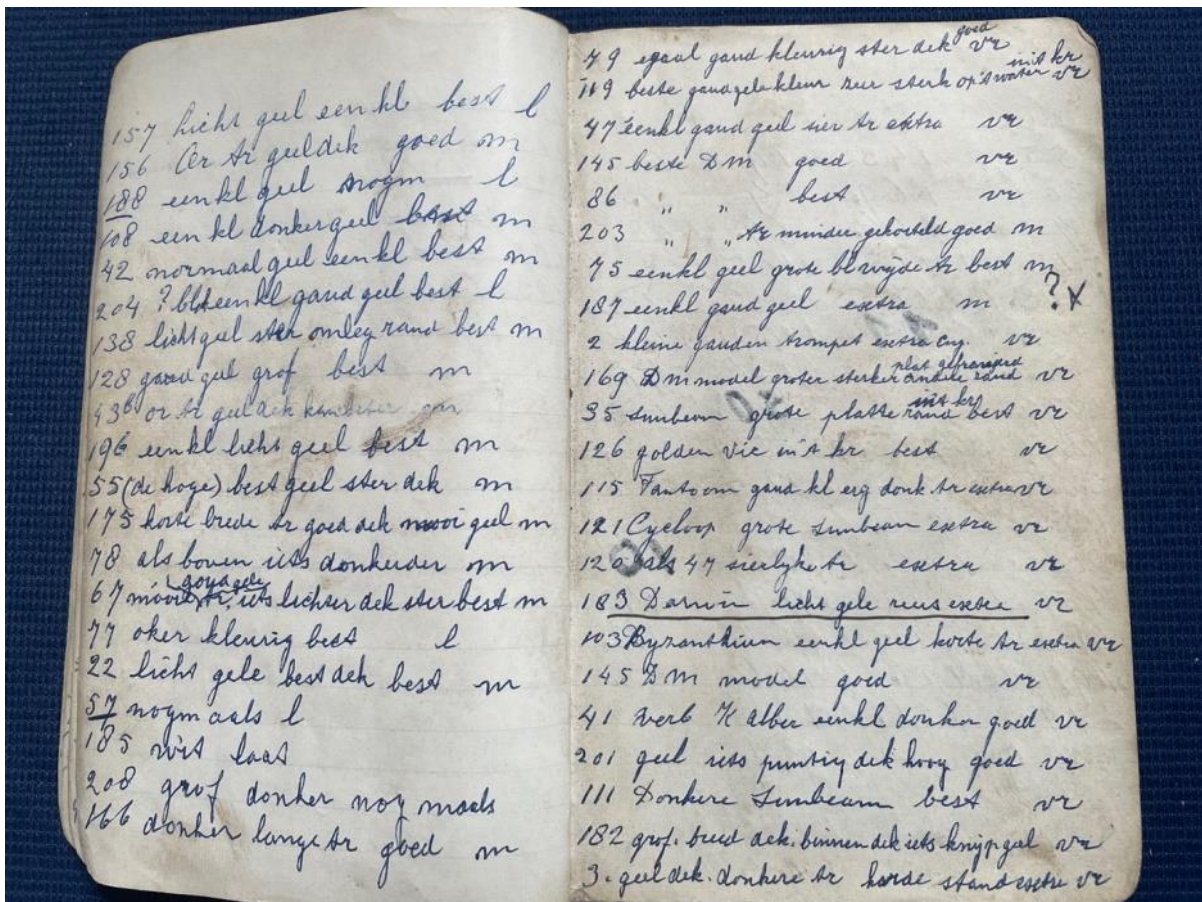 157 licht geel eenkl best l
156 Or tr geel dek goed m
188 eenkl geel nogm l
108 eenkl donkergeel best m
42 normaal geel eenkl best m
204 ? eenkl goud geel best l
138 licht geel ster omleg rand best m
128 goud geel grof best m
43b or tr geel dek m
196 eenkl licht geel best m
55 (de hoge) best geel ster dek m
175 korte brede tr goed dek mooi geel m
78 als boven iets donkerder m
goya gele
67 mooie tr. iets lichter dek ster best m
77 oker kleurig best l
22 licht gele best dek best m
57 nogmaals l
185 wit laat
208 grof donker nog maals
166 donker lange tr goed m
goed
79 egaal goud kleurig ster dek vr
in't kr
119 beste goud gele kleur zeer sterk op 't water vr
47 eenkl goud geel sier tr extra vr
145 beste DM goed vr
86 " " best vr
203 " " tr minder gekarteld goed m
75 eenkl geel grote bl wijde tr best m
187 eenkl goud geel extra m ? x
2 kleine gouden trompet extra vr
plat gefranjerd
169 DM model groter sterker andere rand vr
in't kr
35 sunbeam grote platte rand best vr
126 golden vic in't kr best vr
115 Fantoom goud kl erg donk tr extra vr
121 Cycloop grote sunbeam extra vr
120 als 47 sierlyke tr extra vr
183 Darwin licht gele reus extra vr
103 Byzanthium eenkl geel korte tr extra vr
145 DM model goed vr
41 verb H alber eenkl donker goed vr
201 geel iets puntig dek hoog goed vr
111 Donkere Sunbeam best vr
182 grof. breed dek. binnen dek iets knijp geel vr
3. geel dek. donkere tr harde stand extra vr